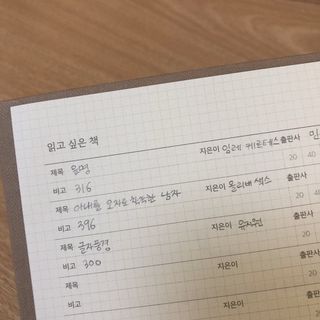 읽고 싶은 책
제목 운명 지은이 임레 케르테스 출판사 민
비고 316 20 40
제목 아내를 모자로 착각한 남자 지은이 올리버 색스 출판사
비고 396 20 4
제목 글자풍경 지은이 유지원 출판사
비고 300 20
제목 지은이 출판사
비고 20
제목 지은이
비고